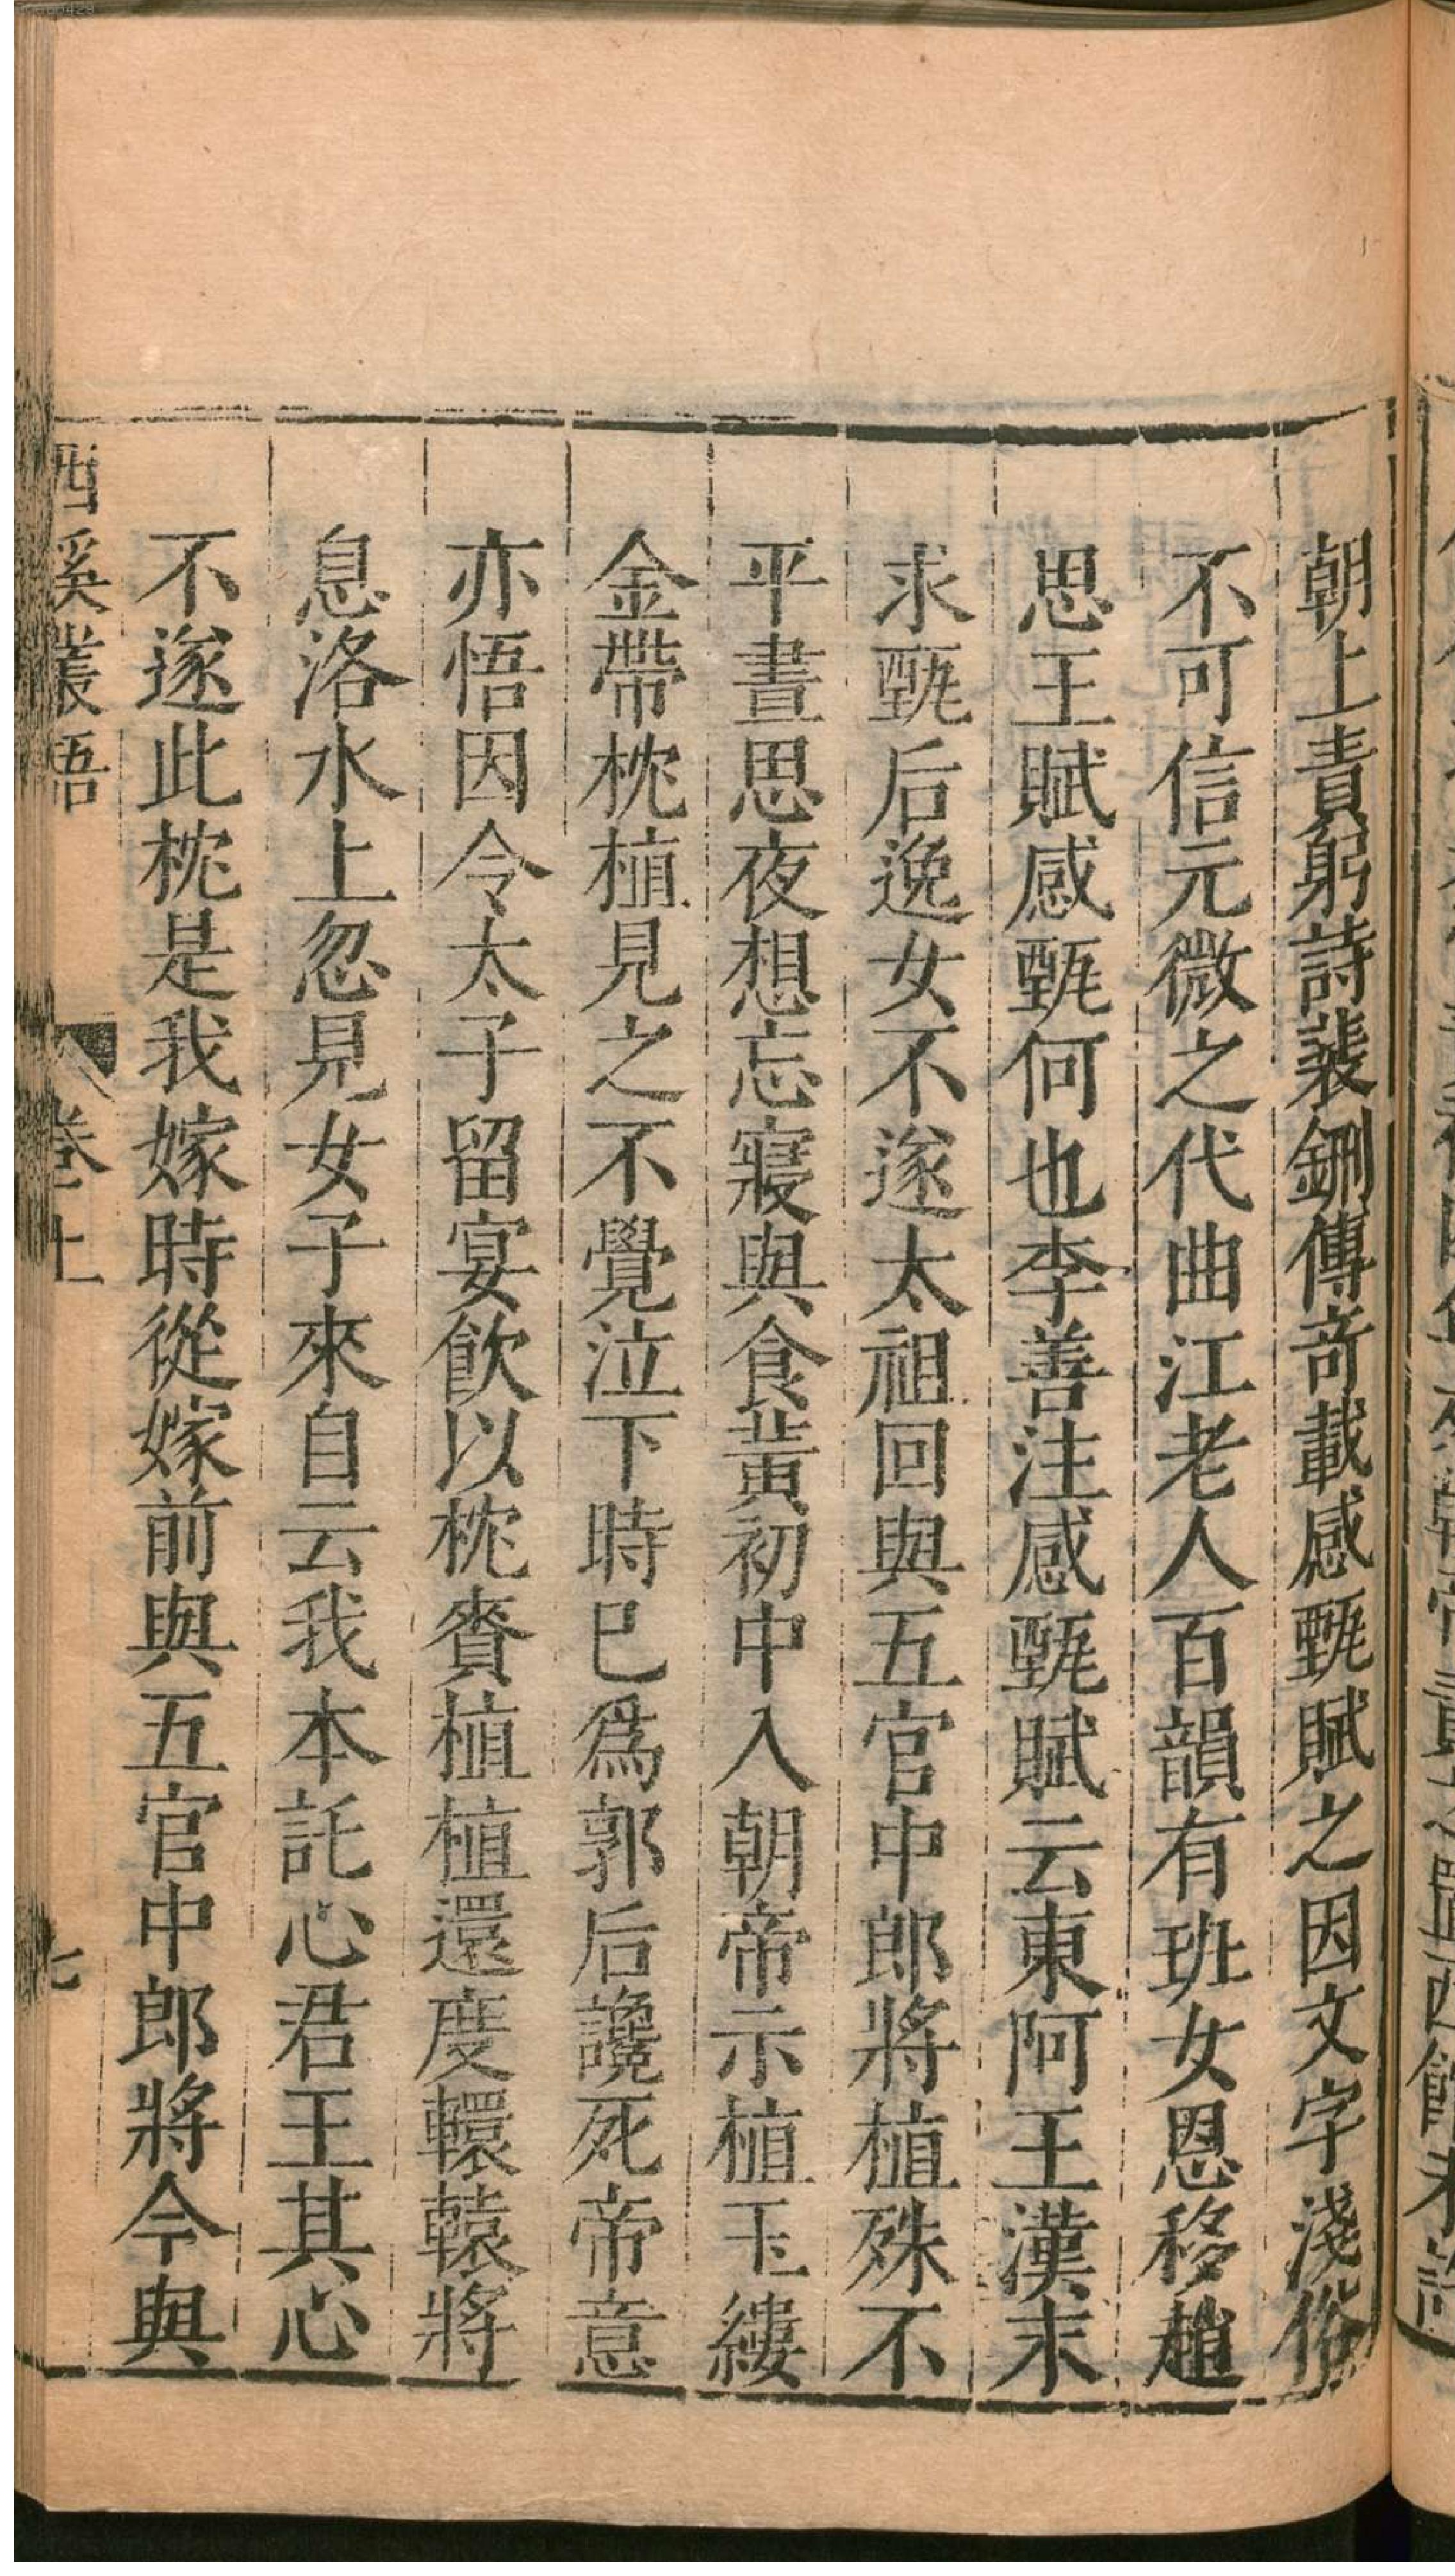 朝上責躬詩裴鉶傳奇載感甄賦之因文字淺俗
不可信元微之代曲江老人百韻有班女恩移趙
思王賦感甄何也李善注感甄賦云東阿王漢末
求甄后逸女不遂太祖回與五官中郎將植殊不
平晝思夜想忘寢與食黃初中入朝帝示植玉縷
金帶枕植見之不覺泣下時巳為郭后讒死帝意
亦悟因令太子留宴飲以枕賚植植還度轘轅將
息洛水上忽見女子來自云我本託心君王其心
不遂此枕是我嫁時從嫁前與五官中郎將今與
西溪叢語 卷上 七